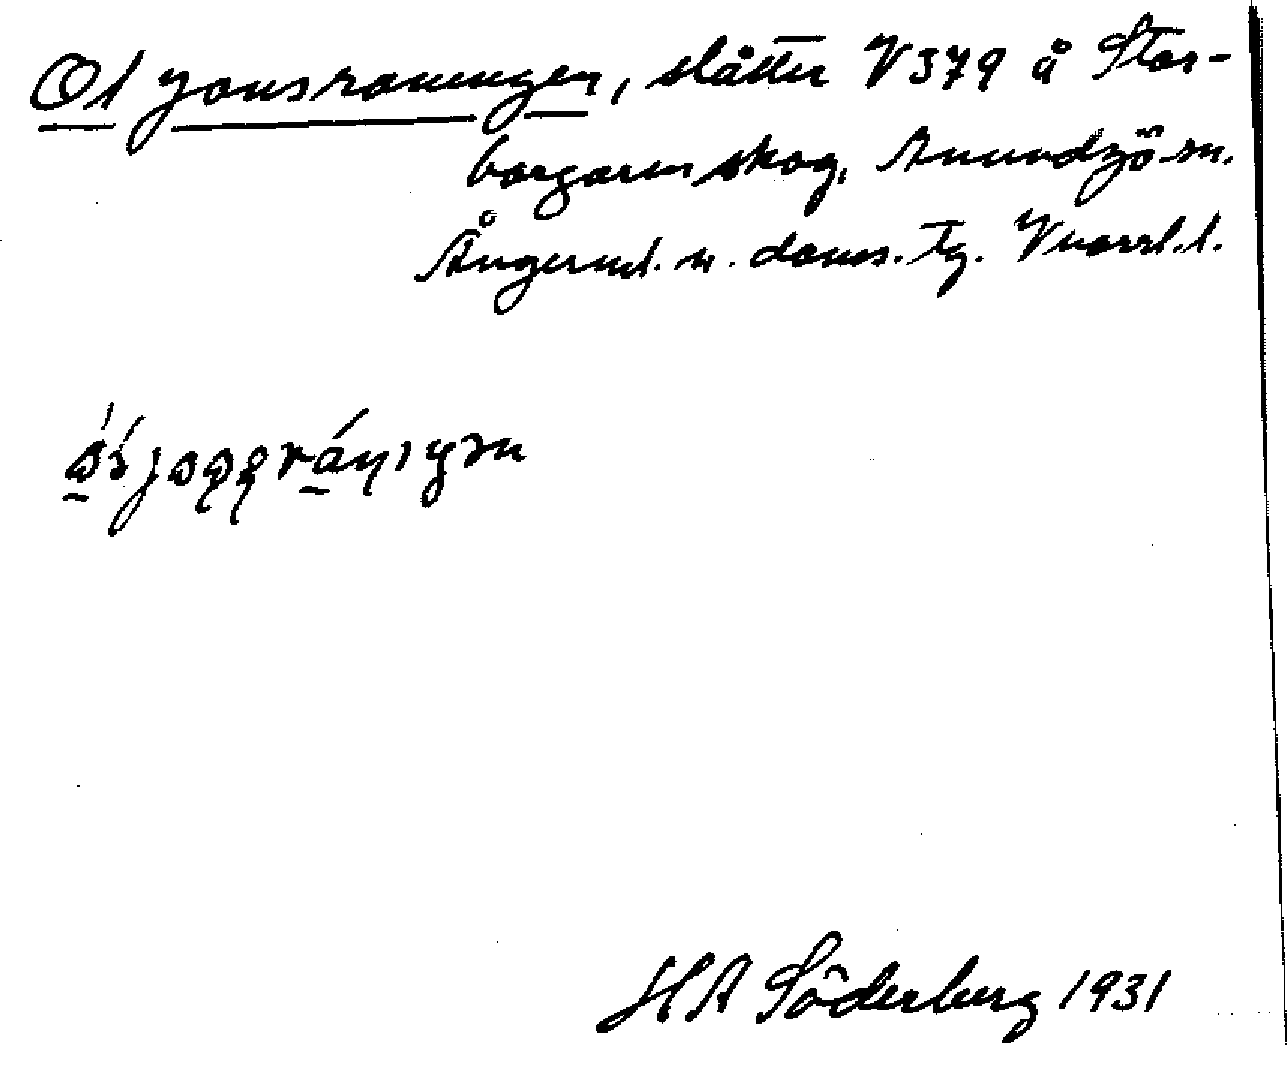 Ol Jonsraningen, slåtter V 379 å Stor-
borgaren skog, Anundsjö sn.
Ångerml. n. doms. tg. Vnorrl. l.
H A Söderberg 1931